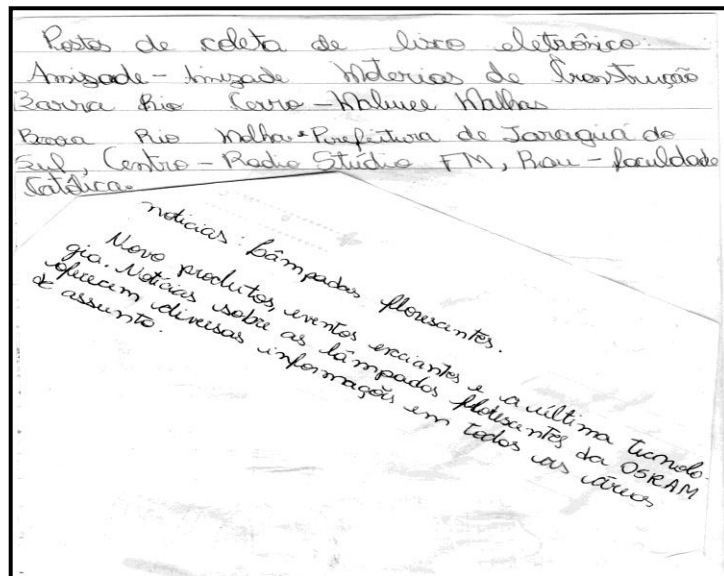 Postos de coleta de lixo eletrônico:
Amizade - Amizade Materias de Construção
Barra Rio Cerro - Malwee Malhas
Barra Rio Molha * Prefeitura de Jaraguá do
Sul, Centro - Radio Stúdio FM, Rau - faculdade
Católica.
notícias: Lâmpadas florescentes.
Novo produtos, eventos exciantes e a última tecnolo-
gia. Notícias sobre as lâmpadas florescentes da OSRAM
oferecem diversas informações em todos as áreas
de assunto.